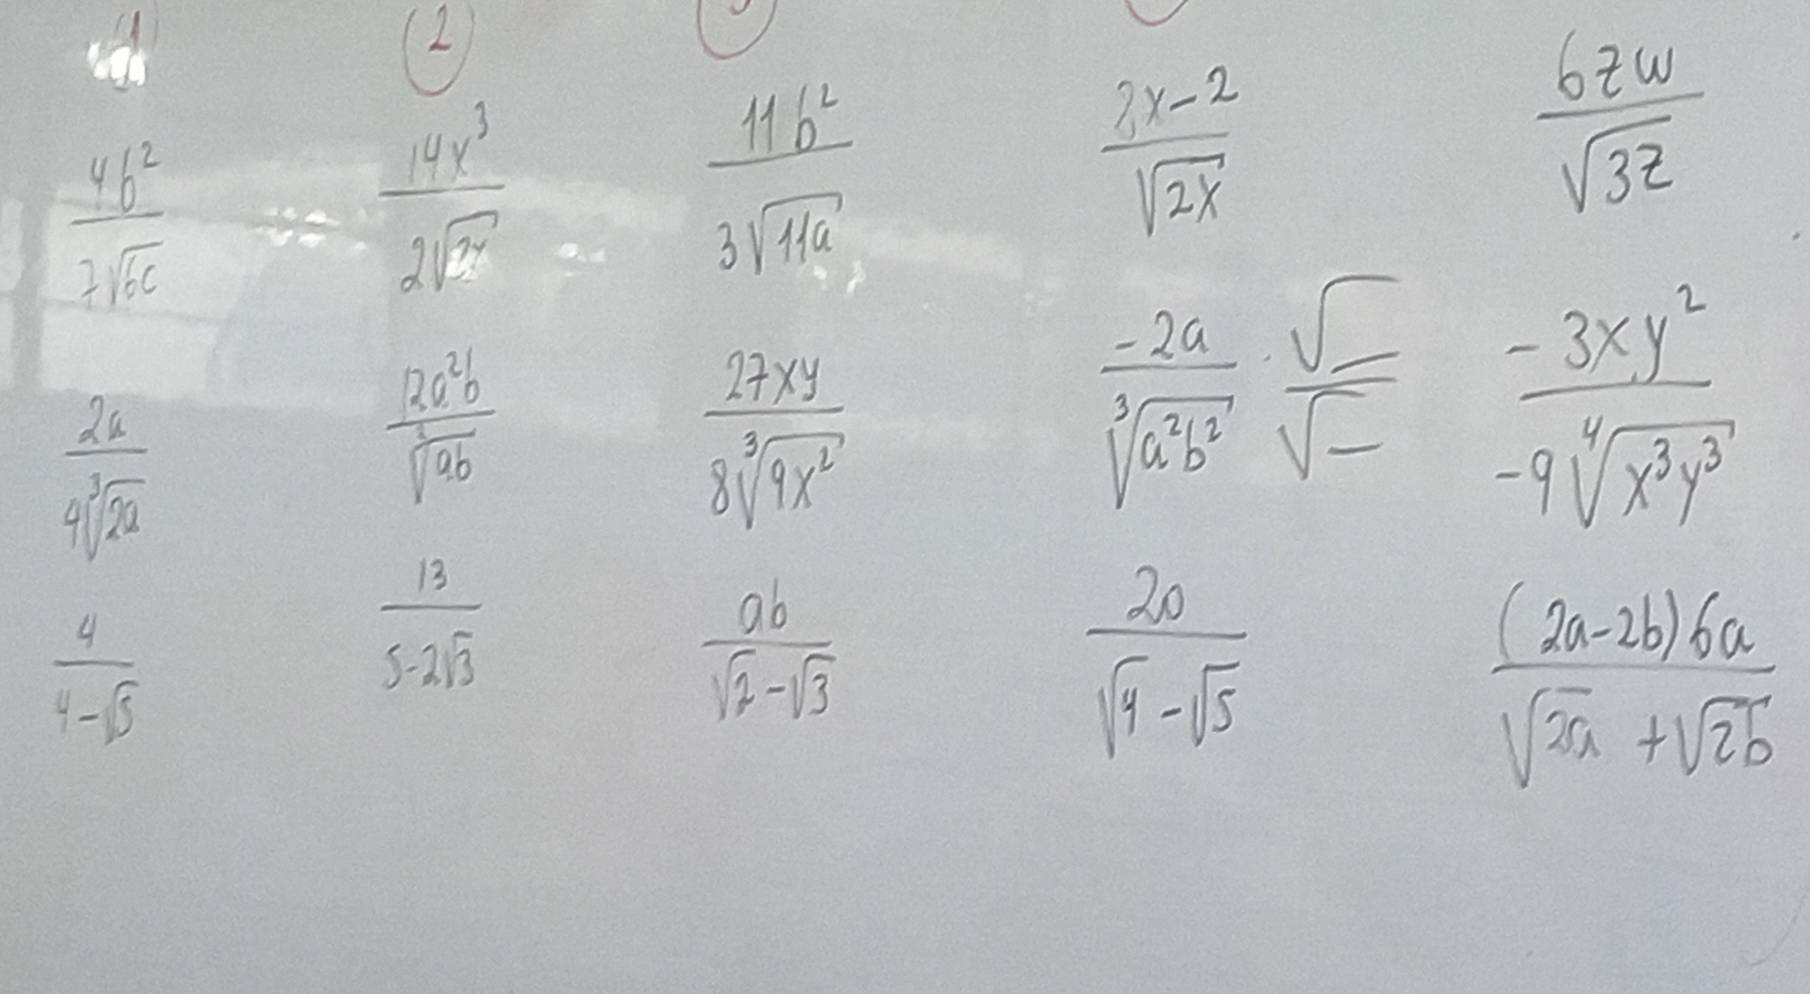 1 2 3
4b² / 7√6c
14x³ / 2√2x
11b² / 3√11a
2x-2 / √2x
6zw / √3z
2a / 4∛2a
12a²b / ∛ab
27xy / 8∛9x²
-2a / ∛a²b² · √_ / √_
-3xy² / -9∜x³y³
4 / 4-√5
13 / 5-2√3
ab / √2-√3
20 / √4-√5
(2a-2b)6a / √2a +√2b